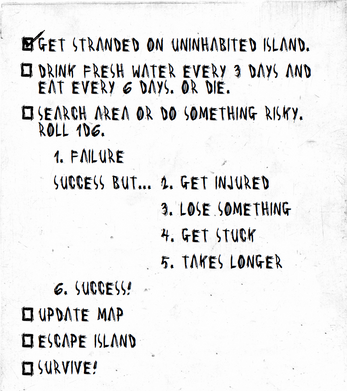 GET STRANDED ON UNINHABITED ISLAND.
DRINK FRESH WATER EVERY 3 DAYS AND
EAT EVERY 6 DAYS. OR DIE.
SEARCH AREA OR DO SOMETHING RISKY.
ROLL 1D6.
1. FAILURE
SUCCESS BUT... 2. GET INJURED
3. LOSE SOMETHING
4. GET STUCK
5. TAKES LONGER
6. SUCCESS!
UPDATE MAP
ESCAPE ISLAND
SURVIVE!